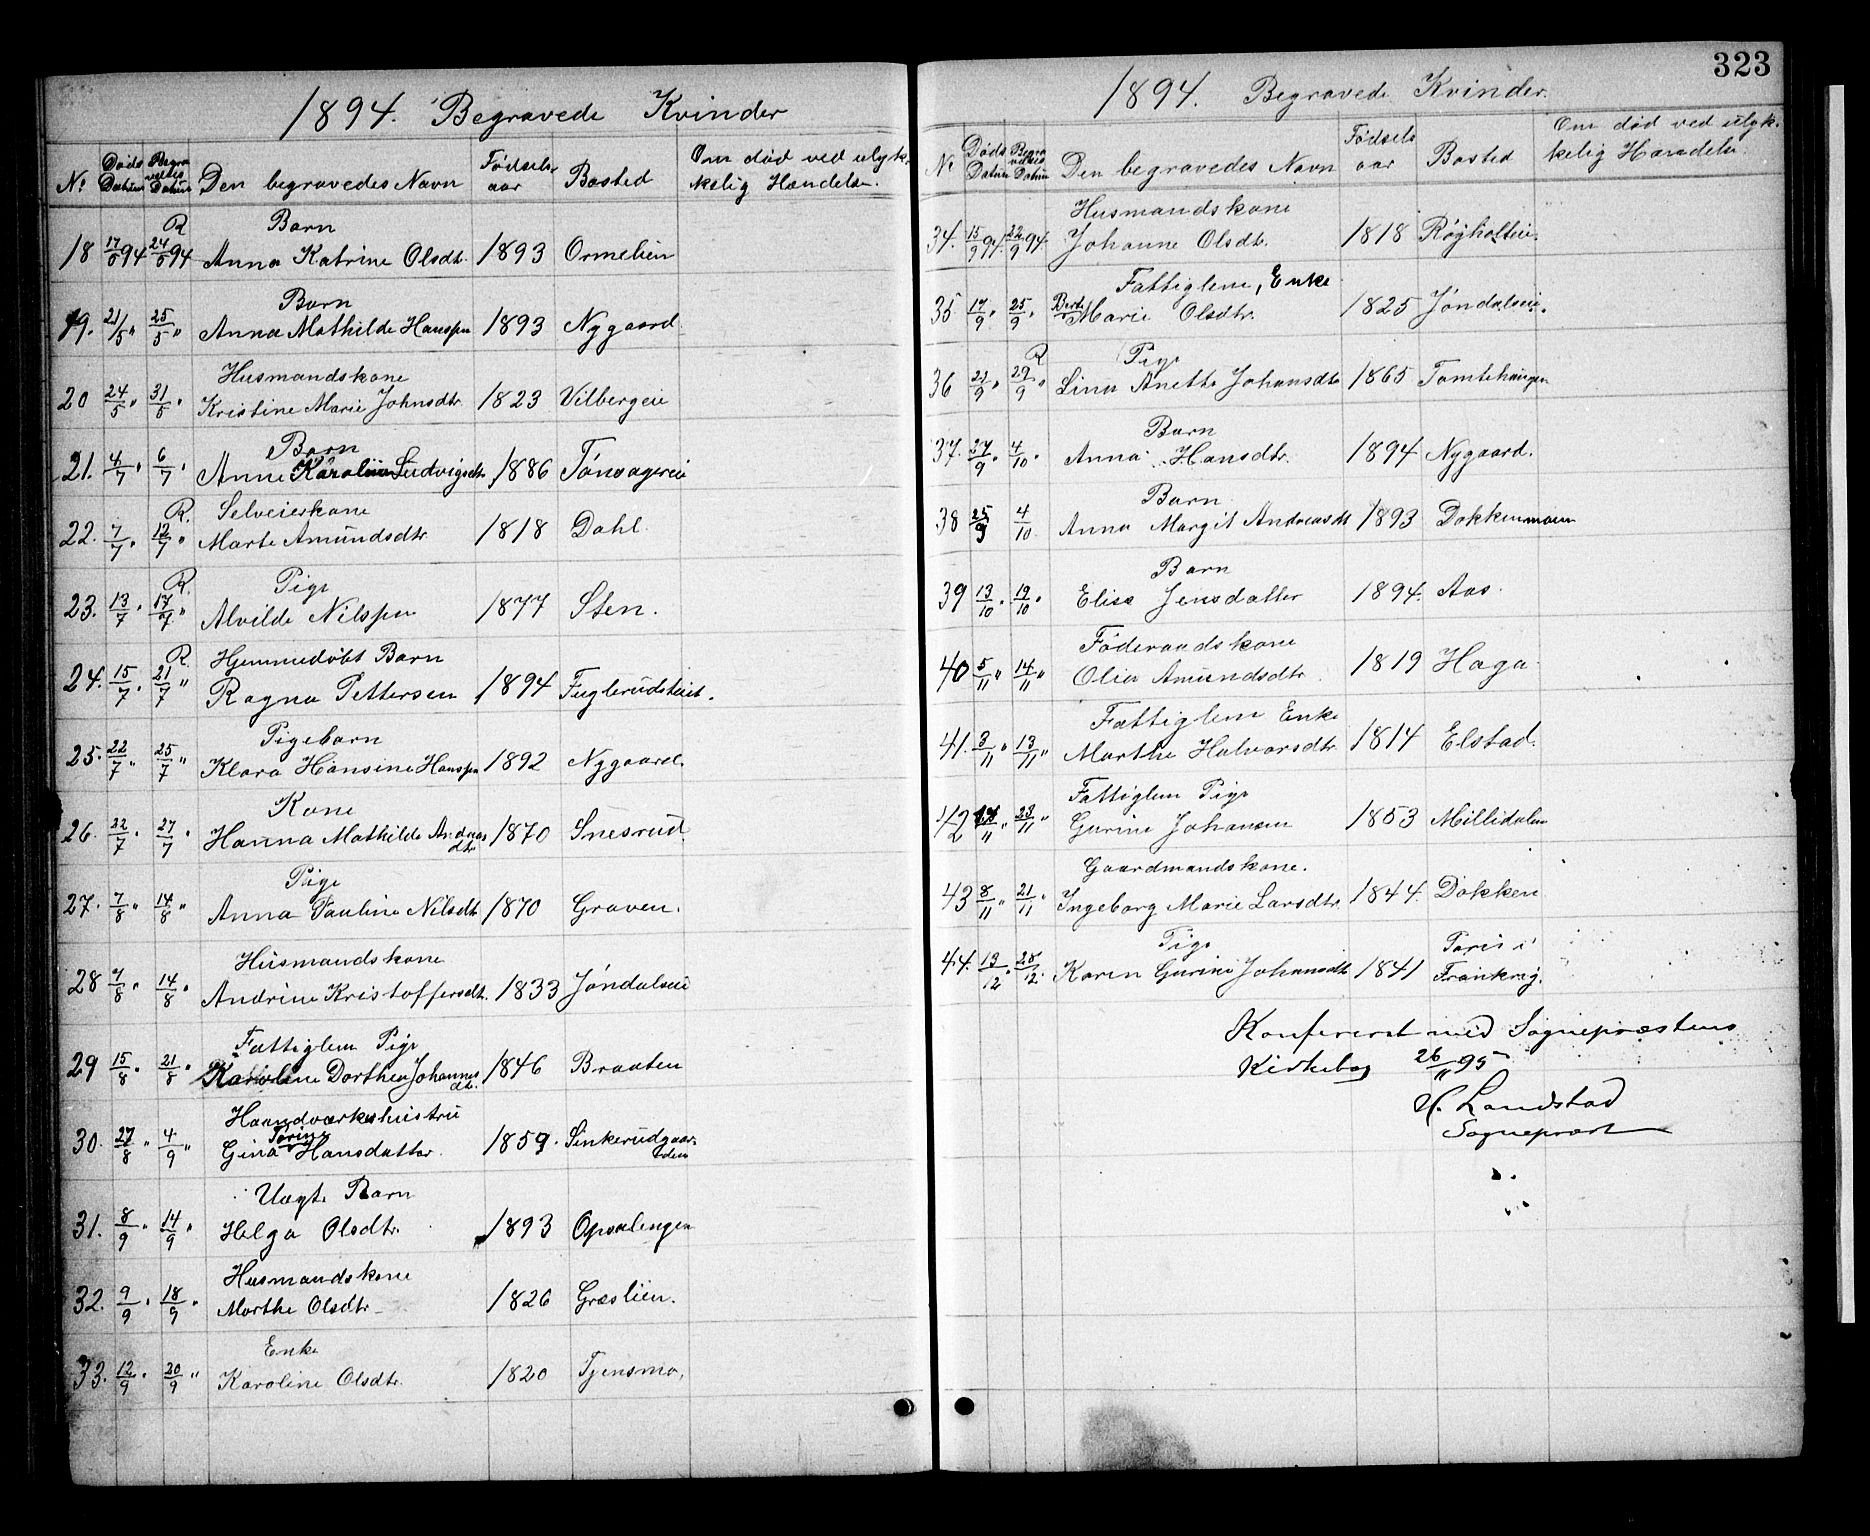 1894. Begravede Kvinder
No Døds Datum Begravelses Datum Den begravedes Navn Fødsels aar Bosted Om død ved ulyk-
kelig Hændelse.
R Barn
18 17/5 94 24/5 94 Anna Katrine Olsdtr. 1893 Ormelien
Barn
19. 21/5 " 25/5 " Anna Mathilde Hanssen 1893 Nygaard
Husmandskone
20 24/5 " 31/5 " Kristine Marie Johnsdtr 1823 Vilbergeie
Barn
21. 4/7 " 6/7 " Anne Karoline Ludvigsdtr 1886 Tønsagereie
R. Selveierskone
22. 7/7 " 12/7 " Marte Amundsdtr 1818 Dahl.
R. Pige
23. 13/7 " 17/7 " Alvilde Nilssen 1877 Sten.
R Hjemmedøbt Barn
24. 15/7 " 21/7 " Ragna Pettersen 1894 Fuglerud
Pigebarn
25. 22/7 " 25/7 " Klara Hansine Hanssen 1892 Nygaard.
Kone
26. 22/7 " 27/7 " Hanna Mathilde Andreas
dtr 1870 Snesrud
Pige
27. 7/8 " 14/8 " Anna Pauline Nilsdtr 1870 Graven.
Husmandskone
28 7/8 " 14/8 " Andrine Kristoffersdtr. 1833 Jøndalseie
Fattiglem Pige
29 15/8 " 21/8 " Karoline Dorthea Johannes
dtr. 1846 Braaten
Haandværkshustru
30. 27/8 " 4/9 " Gina Torine Hansdatter. 1859. Sinkerudgaar-
den
Uægte Barn
31. 8/9 " 14/9 " Helga Olsdtr. 1893 Opsalengen
Husmandskone
32. 9/9 " 18/9 " Marthe Olsdtr 1826 Græslien.
Enke
33. 12/9 " 20/9 " Karoline Olsdtr. 1820 Tjensmo.
323
1894. Begravede Kvinder.
No Døds Datum Begravelses Datum Den begravedes Navn Fødsels aar Bosted Om død ved ulyk-
kelig Hændelse
Husmandskone
34. 15/9 94. 22/9 94. Johanne Olsdtr. 1818 Røgholteie.
Fattiglem, Enke
35 17/9 " 25/9 " Berte Marie Olsdtr. 1825 Jøndalseie.
R Pige
36 22/9 " 29/9 " Lina Anette Johansdtr 1865 Tomtehaugen
Barn
37. 27/9 " 4/10 " Anna Hansdtr. 1894 Nygaard.
Barn
38 25/9 4/10. Anna Margit Andreasdt 1893 Dokkenmoen
Barn
39 13/10 " 19/10 " Elise Jensdatter 1894. Aas.
Føderaadskone
40 5/11 " 14/11 " Olia Amundsdtr. 1819 Haga.
Fattiglem Enke
41. 3/11 " 13/11 " Marthe Halvorsdtr. 1814 Elstad.
Fattiglem Pige
42 /11 " 23/11 " Gurine Johansen 1853 Millidalen
Gaardmandskone.
43 8/11 " 21/11 " Ingeborg Marie Larsdtr. 1844. Dokken
Pige Paris i
44. 13/12 " 28/12. Karen Gurine Johansdtr 1841 Frankrig.
Konfererat med Sognepræstens
Kirkebog 26/11 95
H. Landstad
Sognepræst